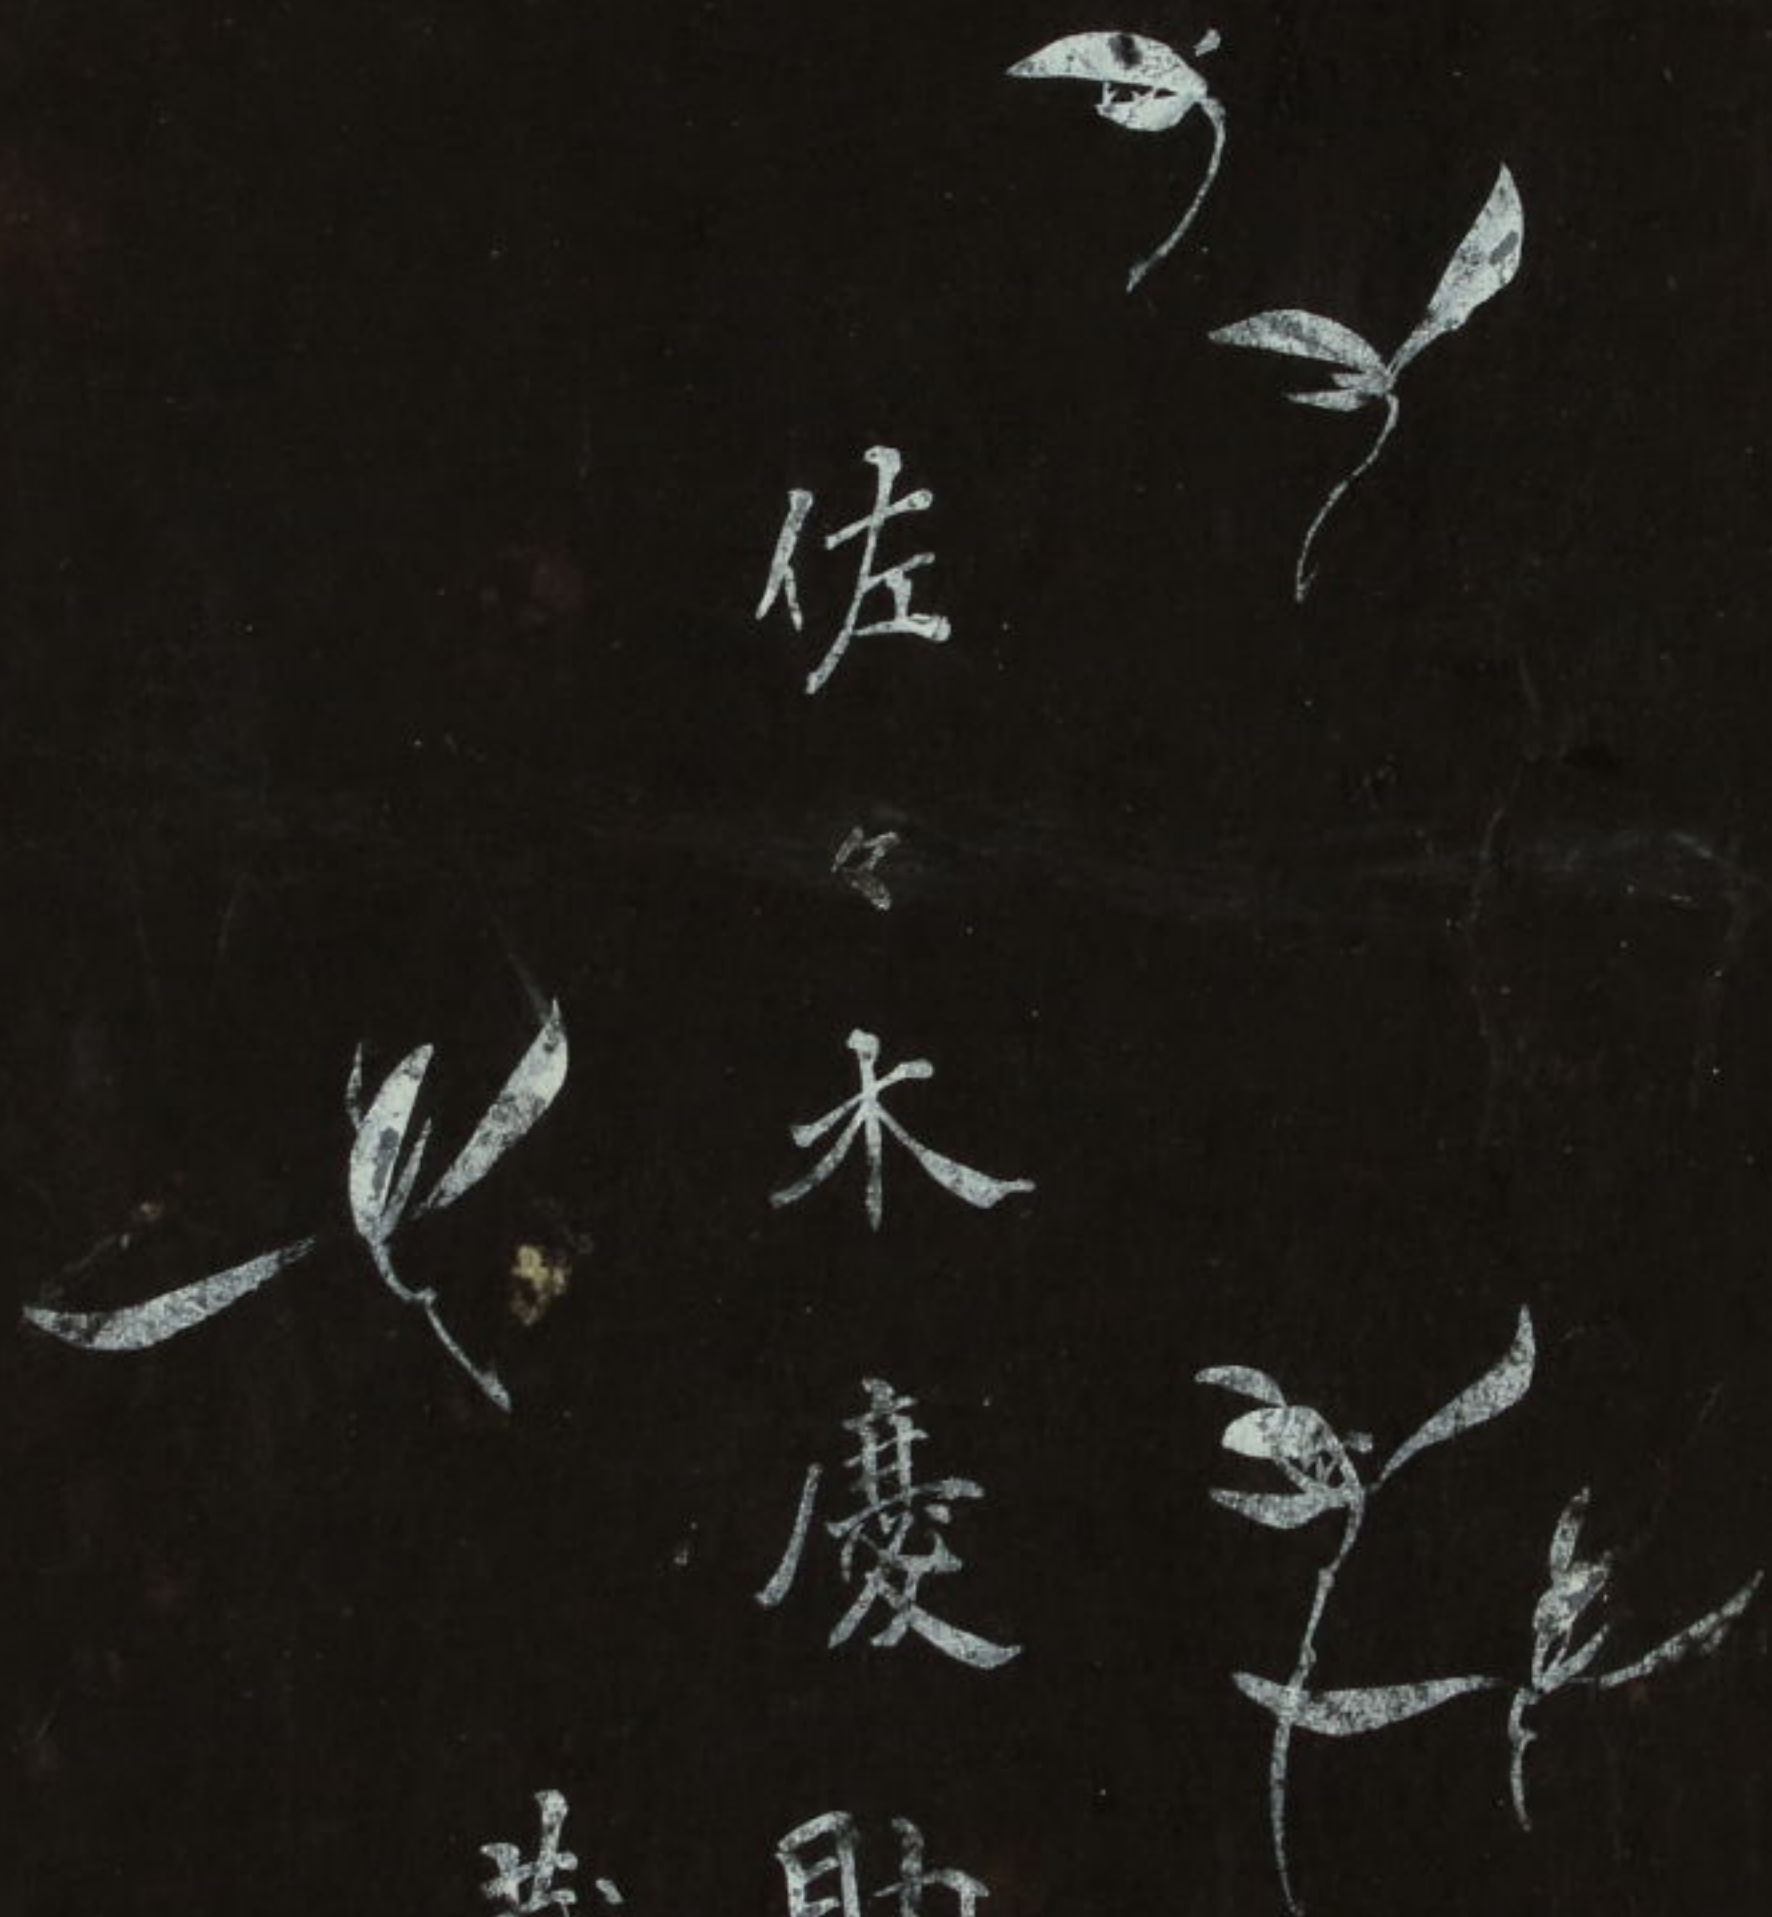 佐々木慶助